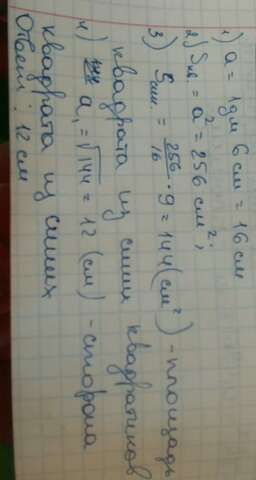 1) a = 1 дм 6 см = 16 см
2) Sкв. = a² = 256 см²;
3) Sсин. = 256/16 · 9 = 144 (см²) - площадь
квадрата из синих квадратиков
4) a₁ = √144 = 12 (см) - сторона
квадрата из синих
Ответ: 12 см